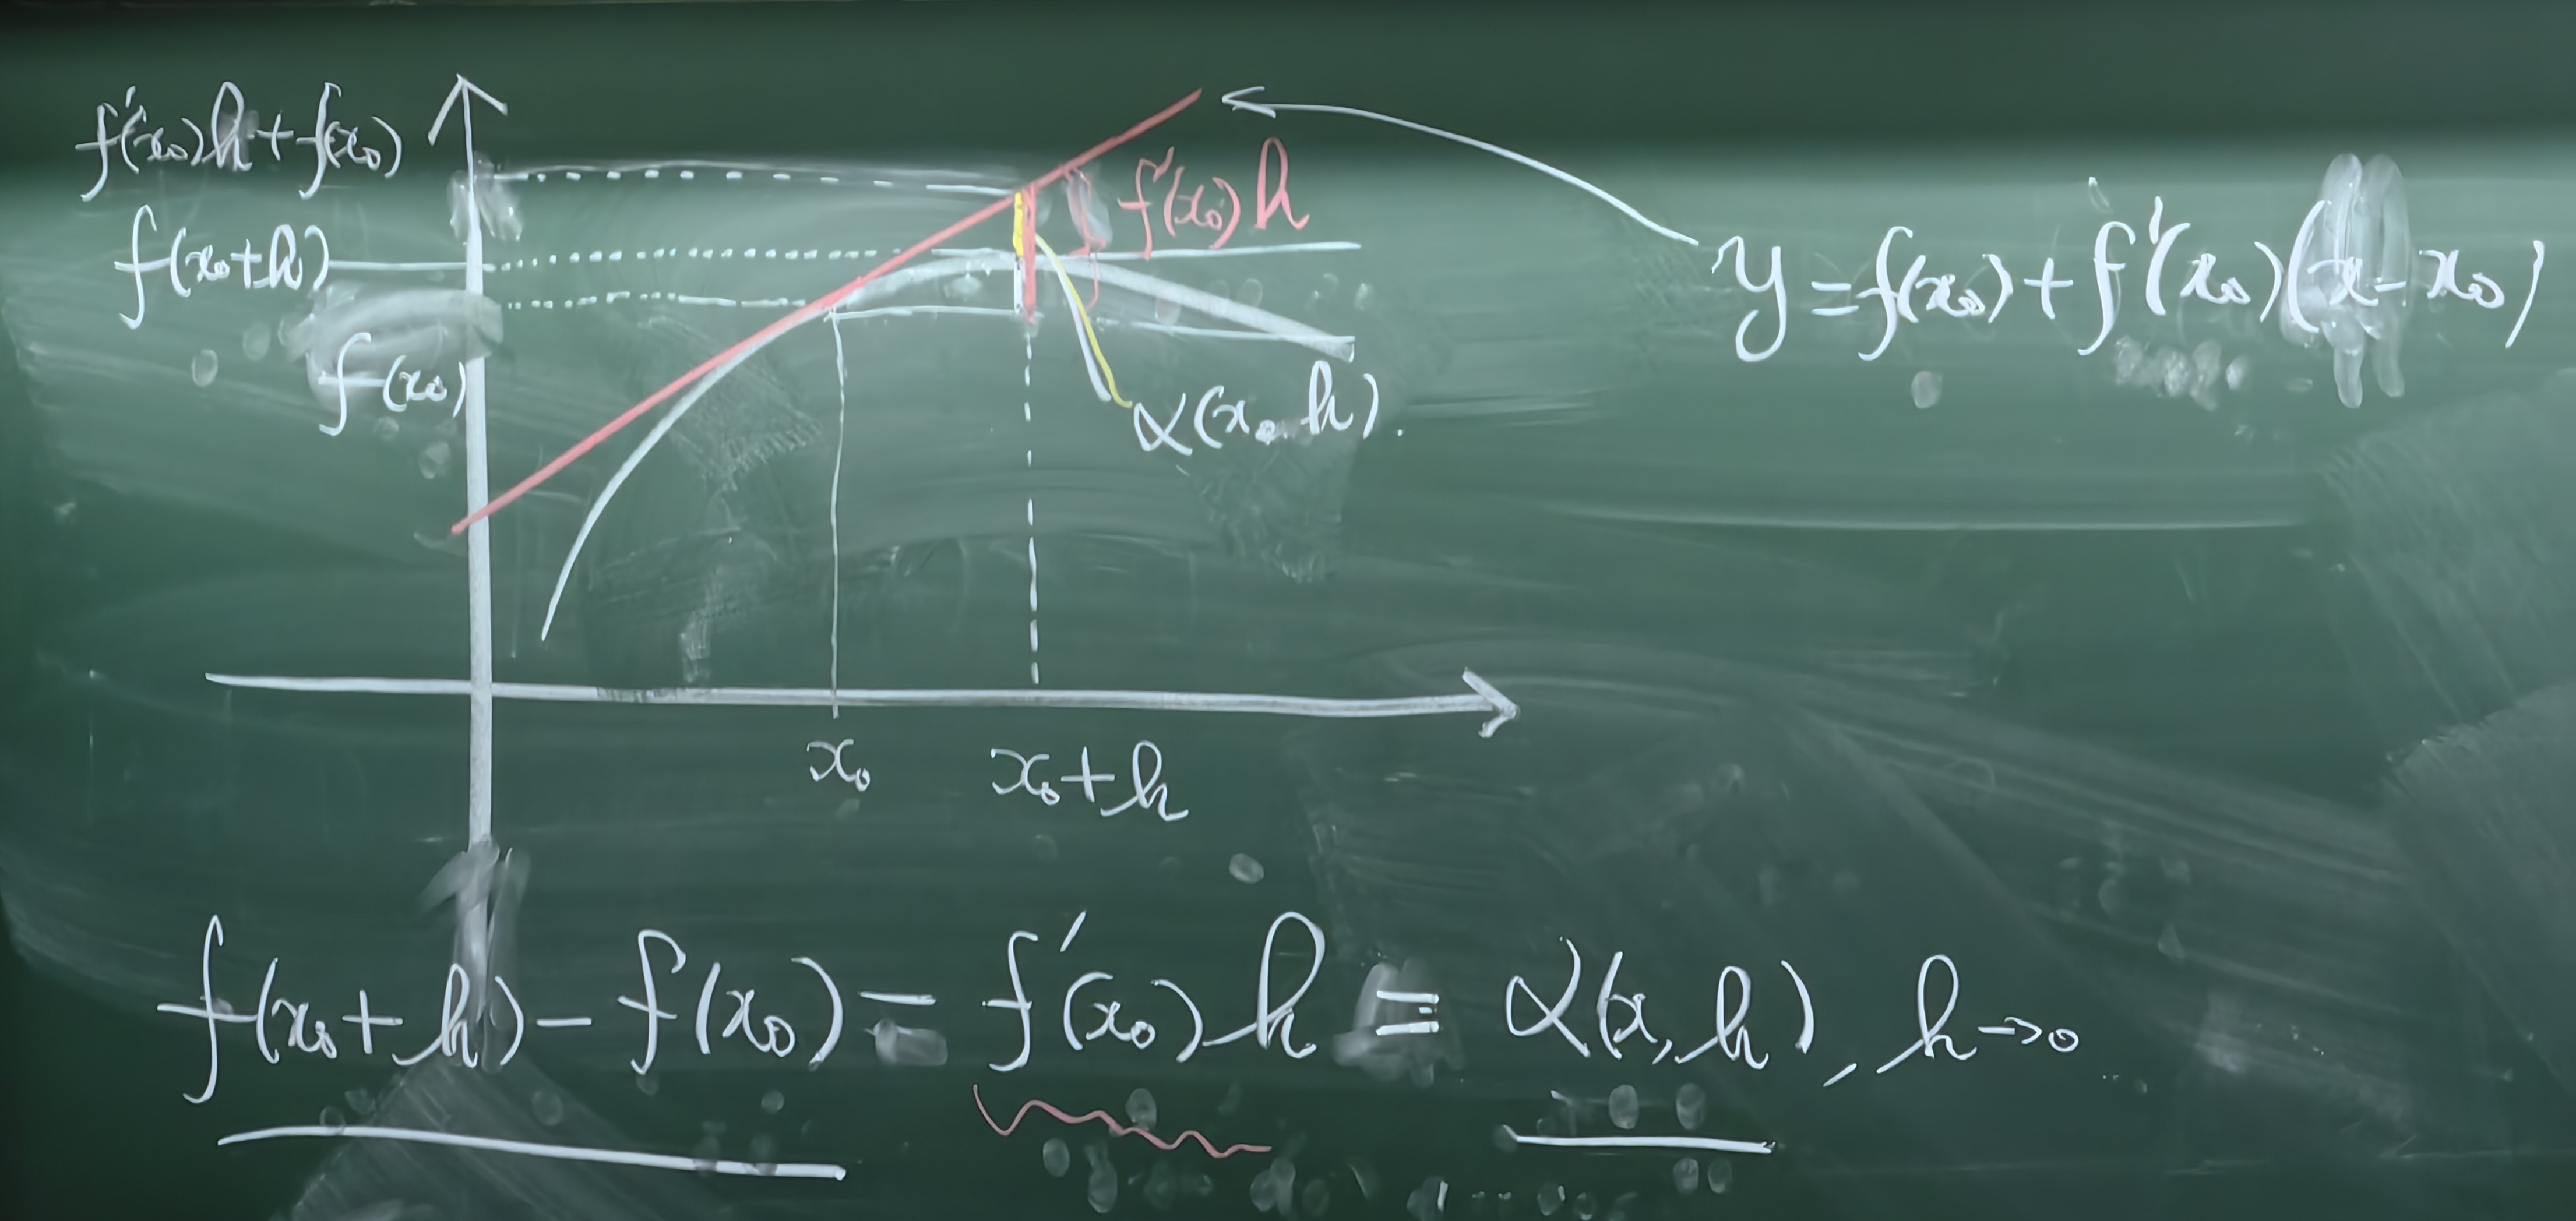 f'(x₀)h+f(x₀)
f(x₀+h)
f(x₀)
f'(x₀)h
α(x₀,h).
y=f(x₀)+f'(x₀)(x-x₀)
x₀
x₀+h
f(x₀+h)-f(x₀)-f'(x₀)h=α(x,h), h→0